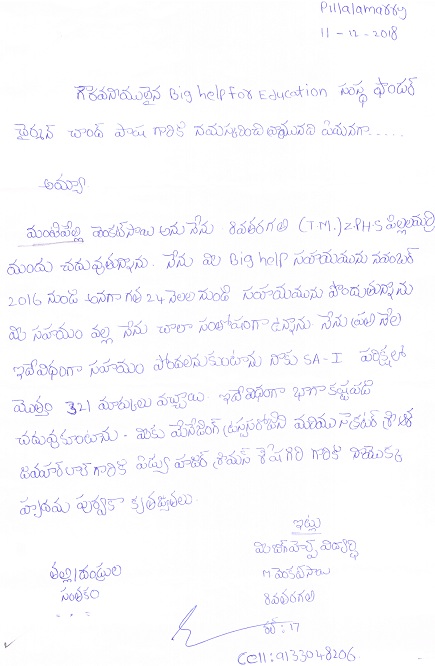 Pillalamarry
11-12-2018
గౌరవనీయులైన Big help For Education సంస్థ ఫౌండర్
చైర్మన్ చాంద్ పాష గారికి నమస్కరించి వ్రాయునది ఏమనగా.....
అయ్యా
వెంకట్‌సాయి అను నేను 8వతరగతి (T.M.) Z.P.H.S పిల్లలమర్రి
నందు చదువుతున్నాను. నేను మీ Big help సహాయమును నవంబర్
2016 నుండి అనగా గత 24 నెలల నుండి సహాయమును పొందుతున్నాను
మీ సహాయం వల్ల నేను చాలా సంతోషంగా ఉన్నాను నేను ప్రతి నెల
ఇదేవిధంగా సహాయం పొందాలనుకుంటాను నాకు SA-I పరీక్షలో
మొత్తం 321 మార్కులు వచ్చాయి ఇదేవిధంగా బాగా కష్టపడి
చదువుకుంటాను. మీకు మేనేజింగ్ మరియు
గారికి గారికి నాయొక్క
హృదయ పూర్వక కృతజ్ఞతలు.
ఇట్లు
మీ బిగ్‌హెల్ప్ విద్యార్థి
తల్లి/దండ్రుల
సంతకం
M వెంకట్‌సాయి
8వతరగతి
...
17
Cell: 9133048206